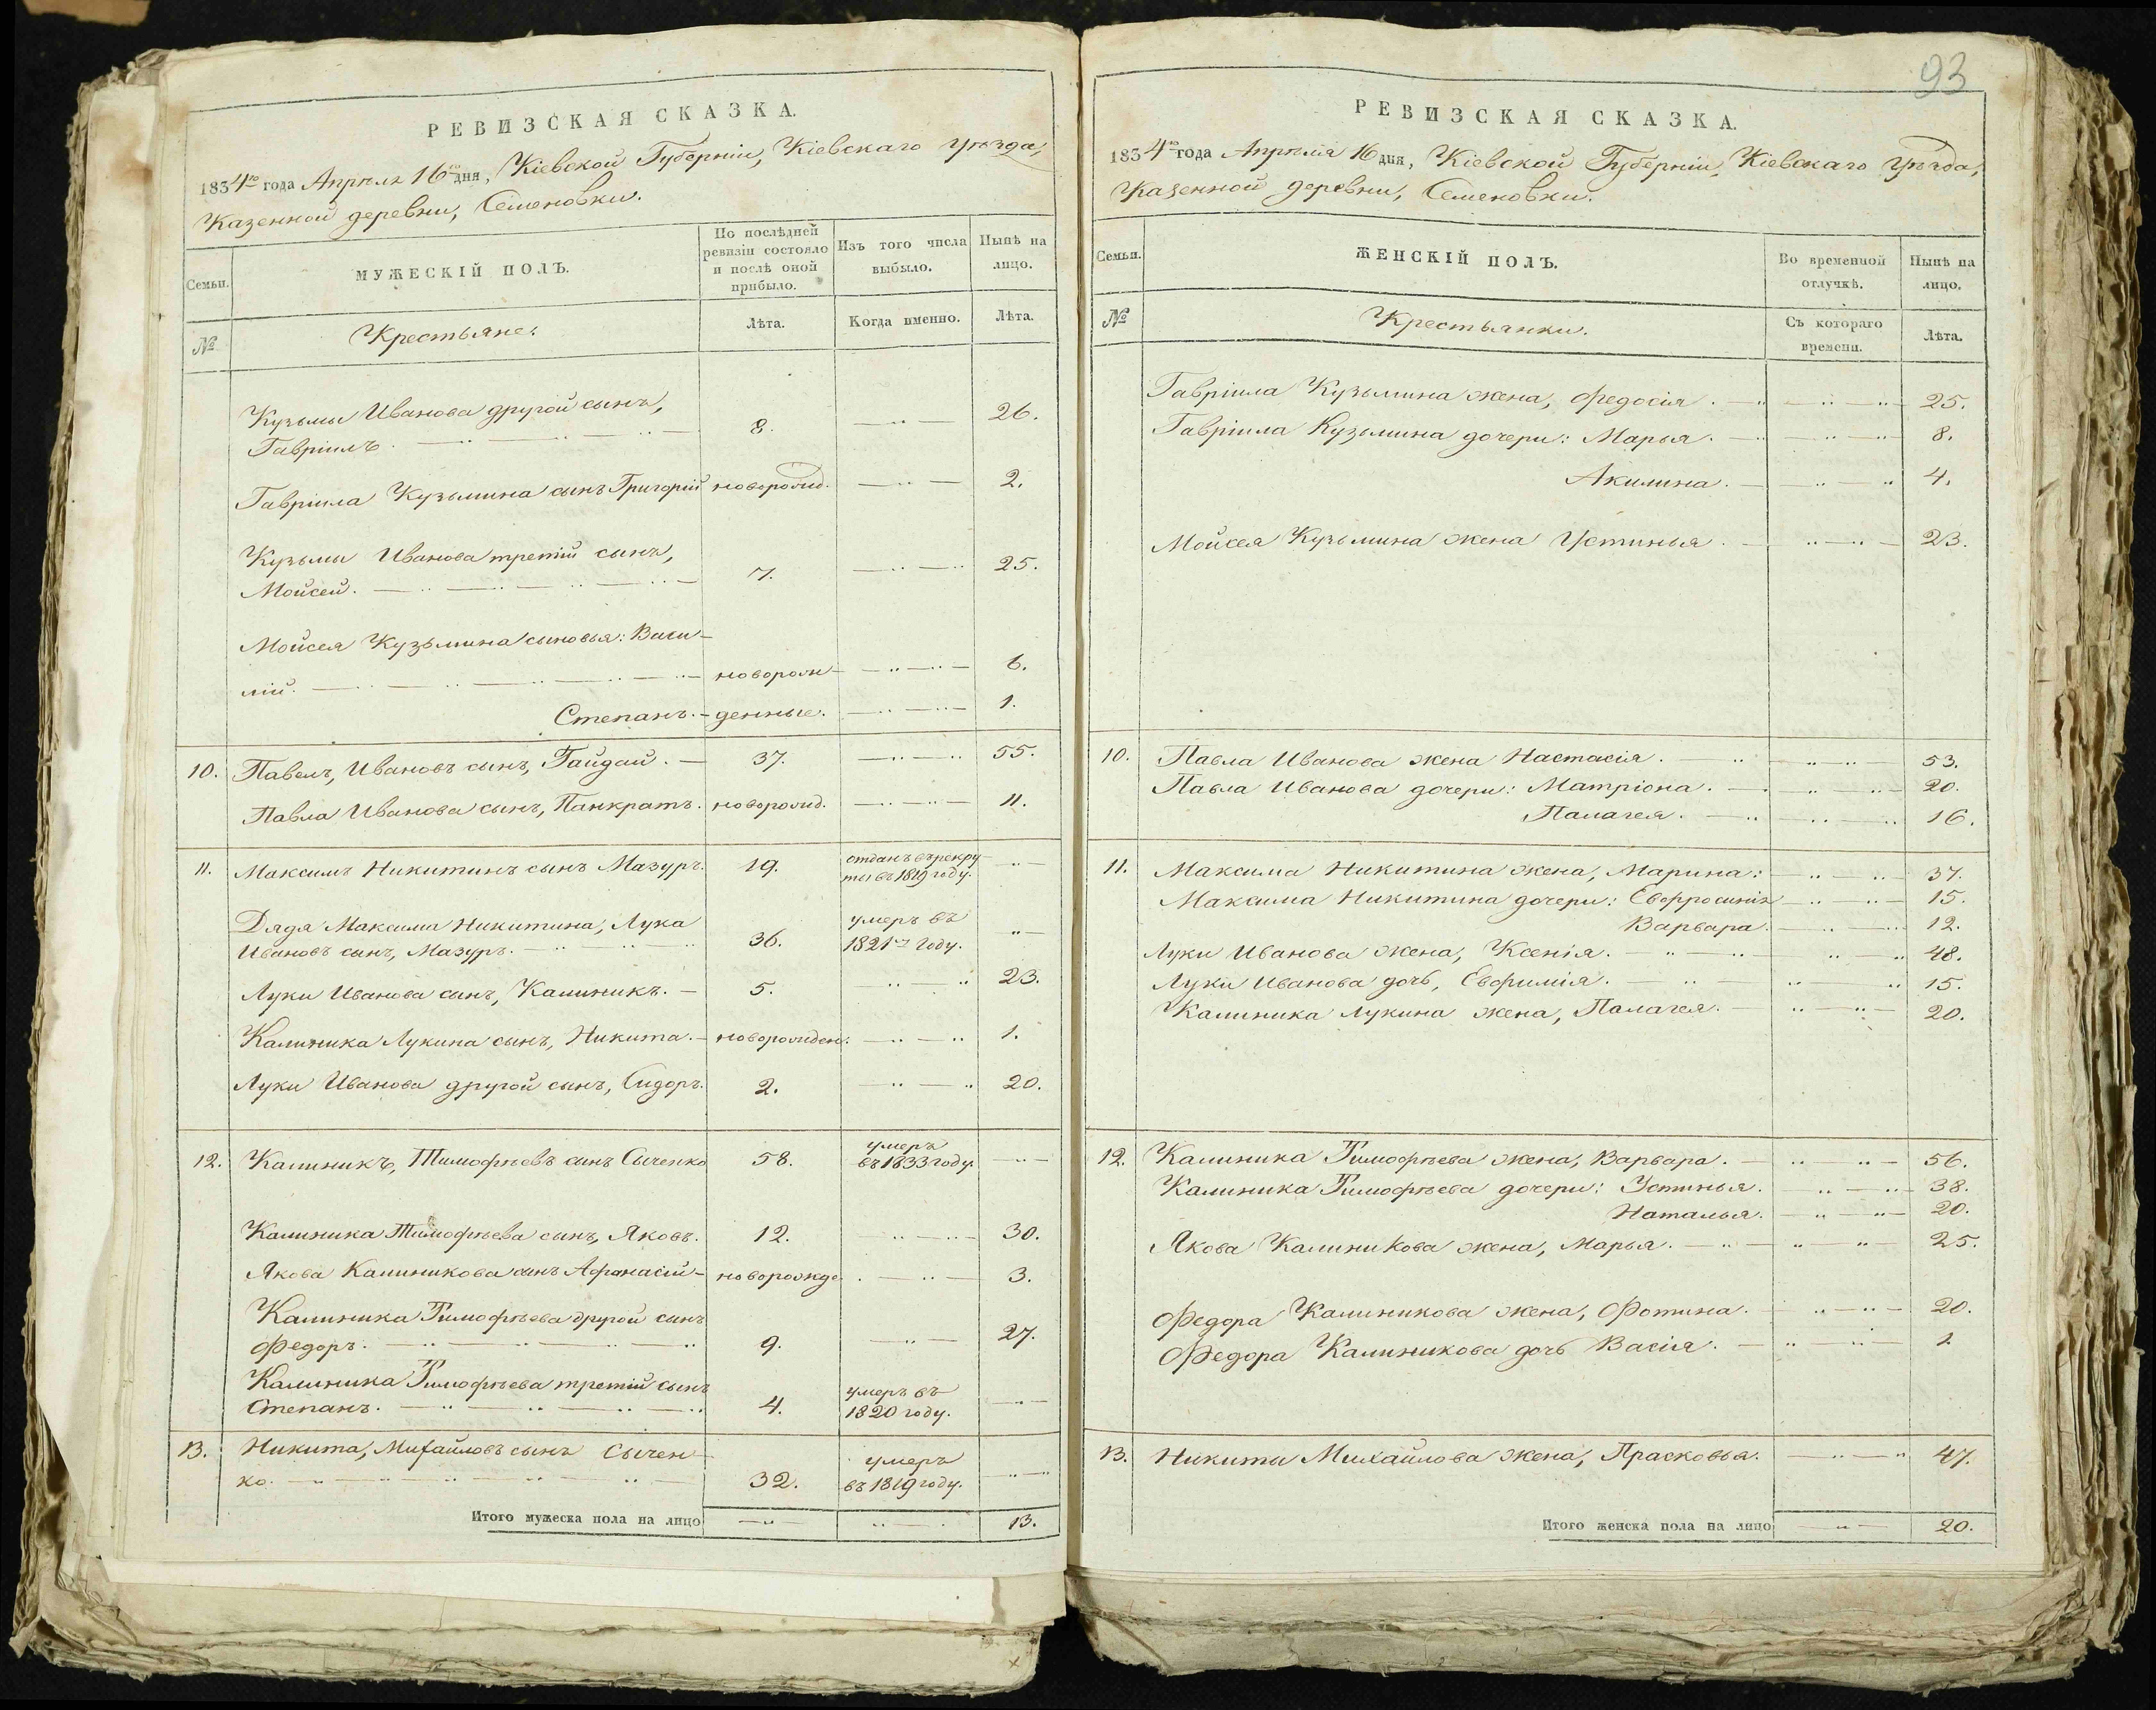 РЕВИЗСКАЯ СКАЗКА.
1834го года Апрѣля 16го дня, Кіевской Губерніи, Кіевскаго Уѣзда,
Казенной деревни, Семеновки.
Семьи.
МУЖЕСКІЙ ПОЛЪ.
По послѣдней ревизіи состояло и послѣ оной прибыло.
Изъ того числа выбыло.
Нынѣ на лицо.
№
Крестьяне.
Лѣта.
Когда именно.
Лѣта.
Кузьмы Иванова другой сынъ,
Гавріилъ. 8. 26.
Гавріила Кузьмина сынъ Григорій новорожд. 2.
Кузьмы Иванова третій сынъ,
Мойсей. 7. 25.
Мойсея Кузьмина сыновья: Васи-
лій. новорож- 6.
Степанъ. денные. 1.
10. Павелъ, Ивановъ сынъ, Гайдай. 37. 55.
Павла Иванова сынъ, Панкратъ. новорожд. 11.
11. Максимъ Никитинъ сынъ Мазуръ. 19. отданъ въ рекру-
ты въ 1819 году.
Дядя Максима Никитина, Лука
Ивановъ сынъ, Мазуръ. 36. умеръ въ
1821м году.
Луки Иванова сынъ, Калиникъ. 5. 23.
Калиника Лукина сынъ, Никита. новорожден. 1.
Луки Иванова другой сынъ, Сидоръ. 2. 20.
12. Калиникъ, Тимофѣевъ сынъ Сыченко 58. умеръ
въ 1833 году.
Калиника Тимофѣева сынъ, Яковъ. 12. 30.
Якова Калиникова сынъ Афанасій новорожде. 3.
Калиника Тимофѣева другой сынъ
Федоръ. 9. 27.
Калиника Тимофѣева третій сынъ
Степанъ. 4. умеръ въ
1820 году.
13. Никита, Михайловъ сынъ Сычен-
ко. 32. умеръ
въ 1819 году.
Итого мужеска пола на лицо 13.
93
РЕВИЗСКАЯ СКАЗКА.
1834го года Апрѣля 16 дня, Кіевской Губерніи, Кіевскаго Уѣзда,
Казенной деревни, Семеновки.
Семьи.
ЖЕНСКІЙ ПОЛЪ.
Во временной отлучкѣ.
Нынѣ на лицо.
№
Крестьянки.
Съ котораго времени.
Лѣта.
Гавріила Кузьмина жена, Федосія. 25.
Гавріила Кузьмина дочери: Марья. 8.
Акилина. 4.
Мойсея Кузьмина жена Устинья. 23.
10. Павла Иванова жена Настасія. 53.
Павла Иванова дочери: Матріона. 20.
Палагея. 16.
11. Максима Никитина жена, Марина: 37.
Максима Никитина дочери: Евфросинія 15.
Варвара. 12.
Луки Иванова жена, Ксенія. 48.
Луки Иванова дочь, Евфимія. 15.
Калиника Лукина жена, Палагея. 20.
12. Калиника Тимофѣева жена, Варвара. 56.
Калиника Тимофѣева дочери: Устинья. 38.
Наталья. 20.
Якова Калиникова жена, Марья. 25.
Федора Калиникова жена, Фотина. 20.
Федора Калиникова дочь Васія. 1.
13. Никиты Михайлова жена, Прасковья. 47.
Итого женска пола на лицо 20.